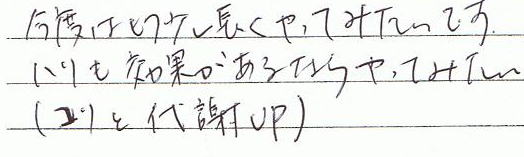 今度はもう少し長くやってみたいです.
ハリも効果があるならやってみたい
(コリと代謝UP)